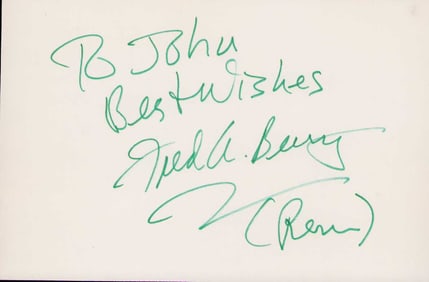 To John
Best Wishes
Fred A. Berry
(Rerun)